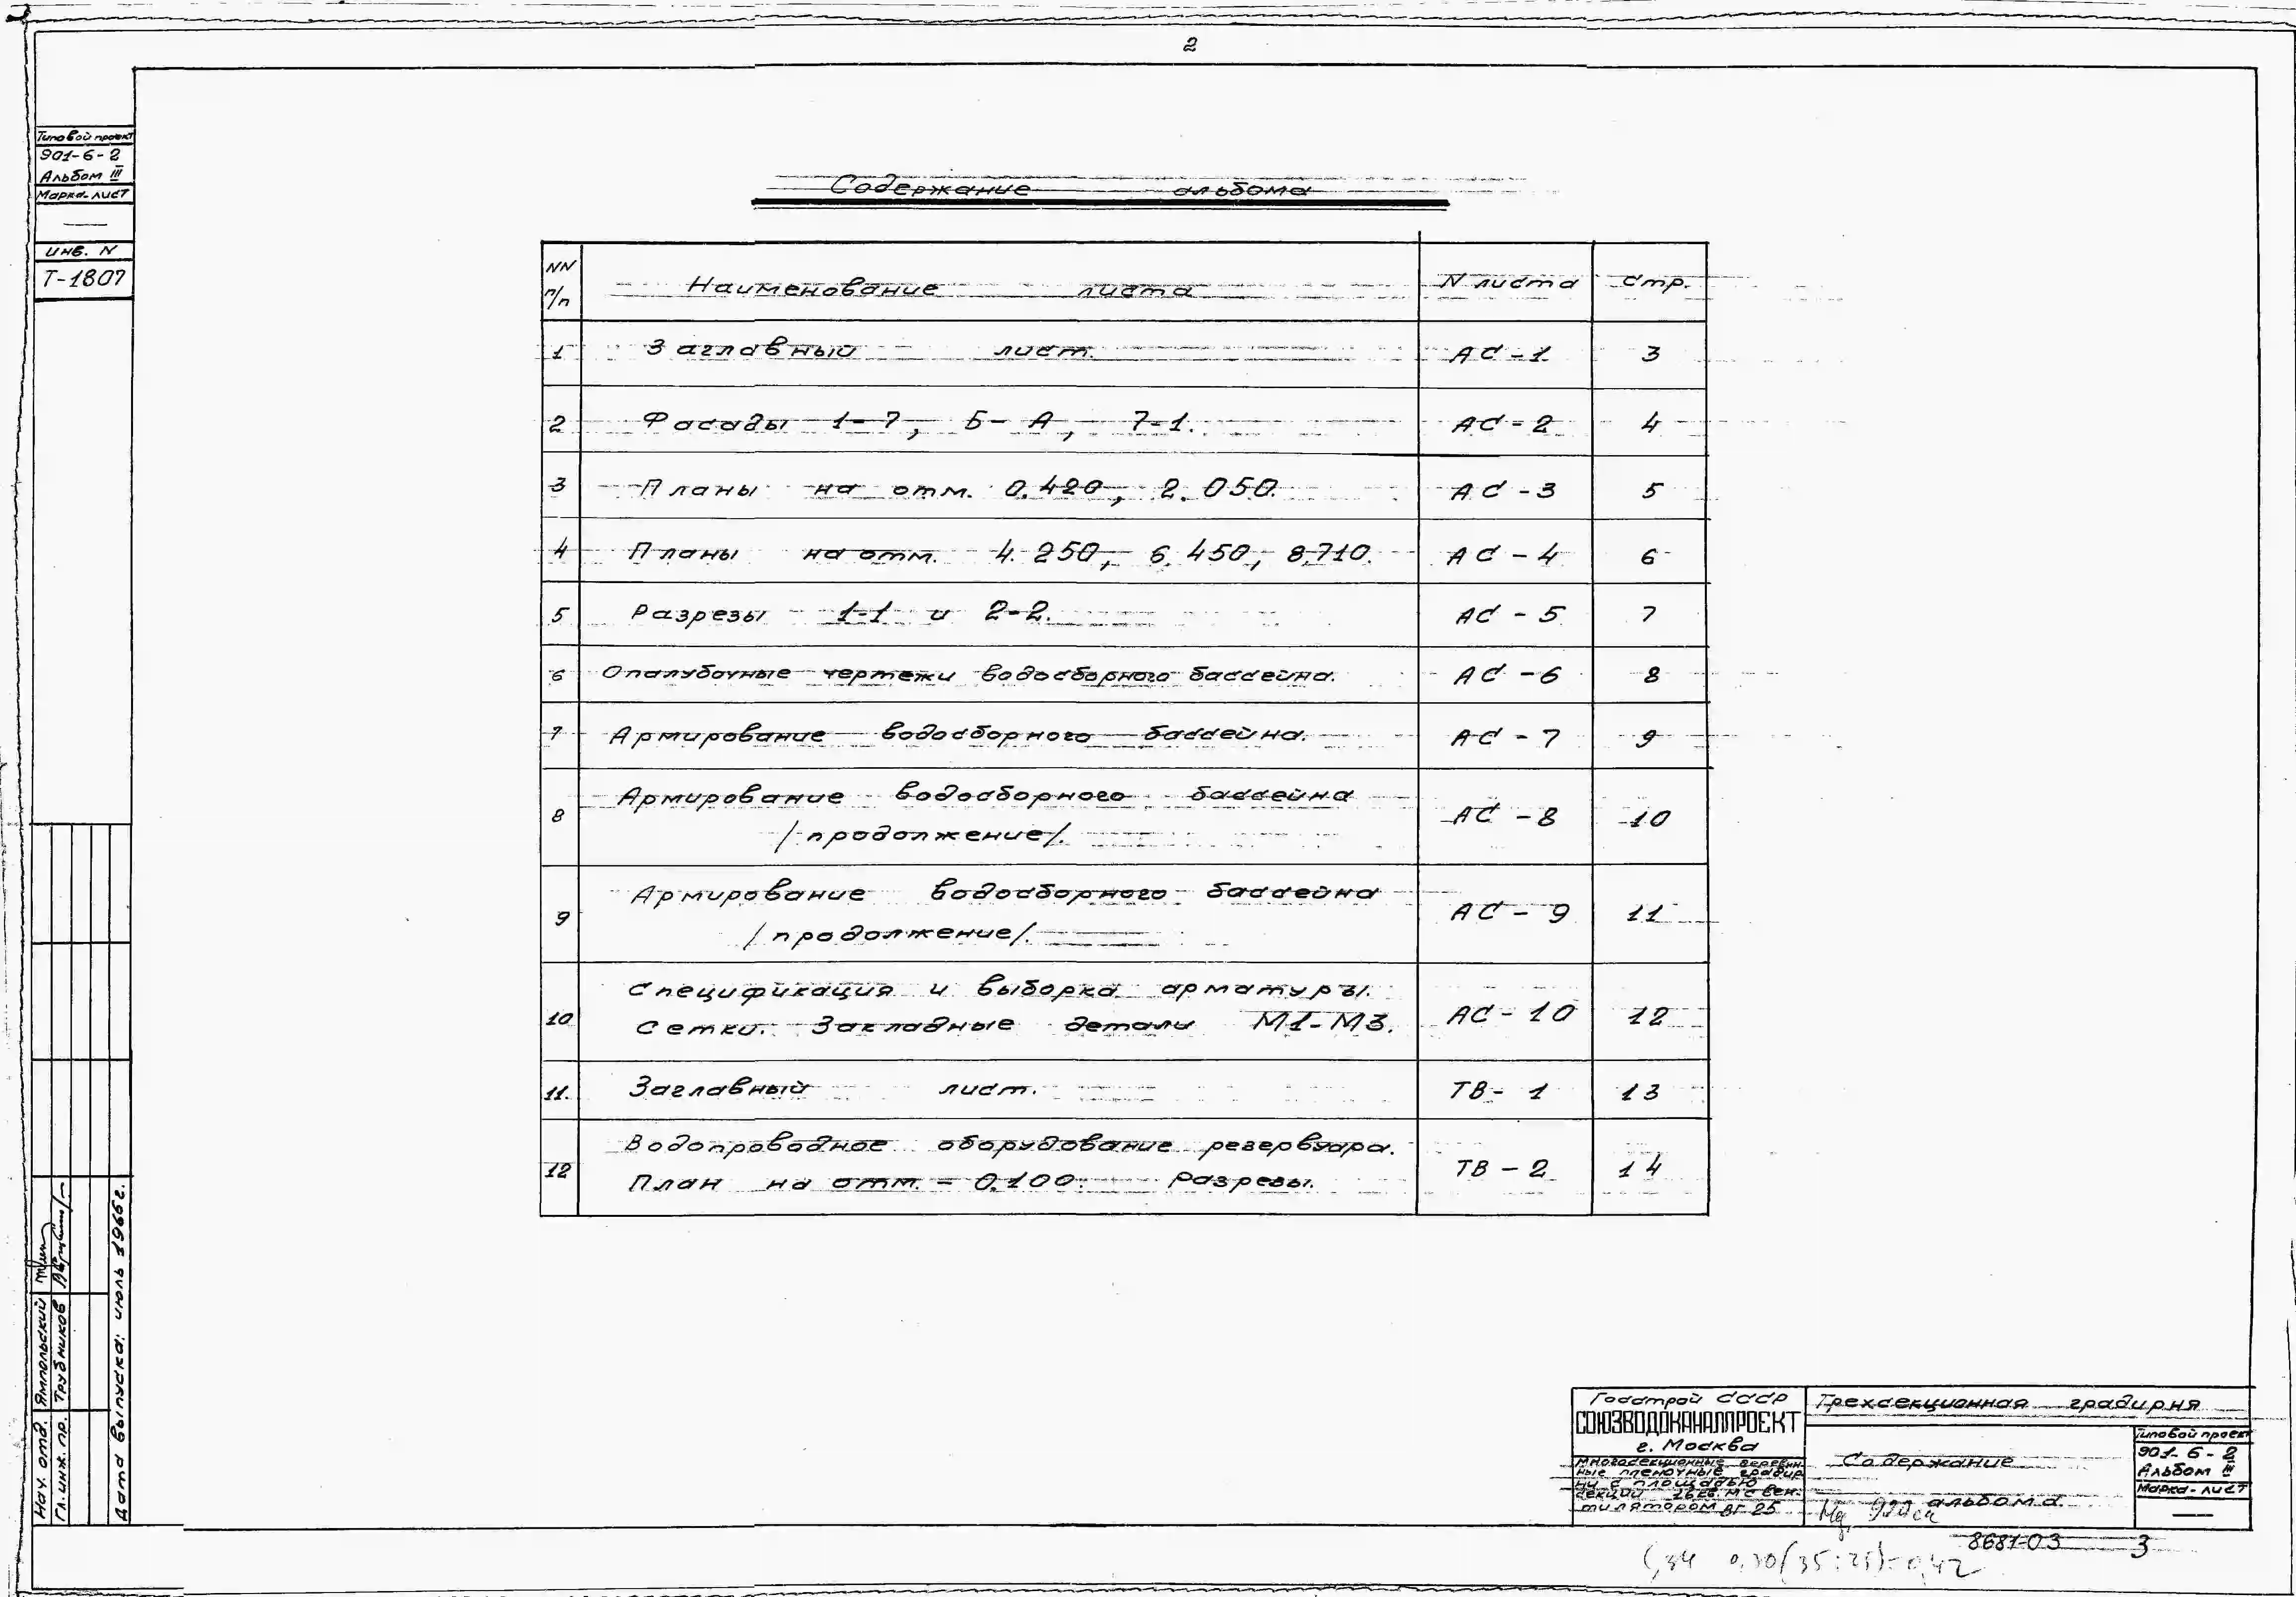 2
Типовой проект
901-6-2
Альбом III
Марка-лист
—
Инв. N
Т-1807
Содержание альбома
NN п/п Наименование листа N листа Стр.
1 Заглавный лист. АС-1 3
2 Фасады 1-7, Б-А, 7-1. АС-2 4
3 Планы на отм. 0.420, 2.050. АС-3 5
4 Планы на отм. 4.250, 6.450, 8.710. АС-4 6
5 Разрезы 1-1 и 2-2. АС-5 7
6 Опалубочные чертежи водосборного бассейна. АС-6 8
7 Армирование водосборного бассейна. АС-7 9
8 Армирование водосборного бассейна АС-8 10
/продолжение/.
9 Армирование водосборного бассейна АС-9 11
/продолжение/.
10 Спецификация и выборка арматуры. АС-10 12
Сетки. Закладные детали М1-М3.
11. Заглавный лист. ТВ-1 13
12 Водопроводное оборудование резервуара. ТВ-2 14
План на отм. -0.100. Разрезы.
Нач. отд. Ямпольский
Гл. инж. пр. Трубников
Дата выпуска: июль 1966г.
Госстрой СССР
СОЮЗВОДОКАНАЛПРОЕКТ
г. Москва
Многосекционные деревян-
ные пленочные градир
ни с площадью
секции 16 кв. м с вен-
тилятором ВГ 25
Трехсекционная градирня
Содержание
альбома
Типовой проект
901-6-2
Альбом III
Марка-лист
—
8681-03 3